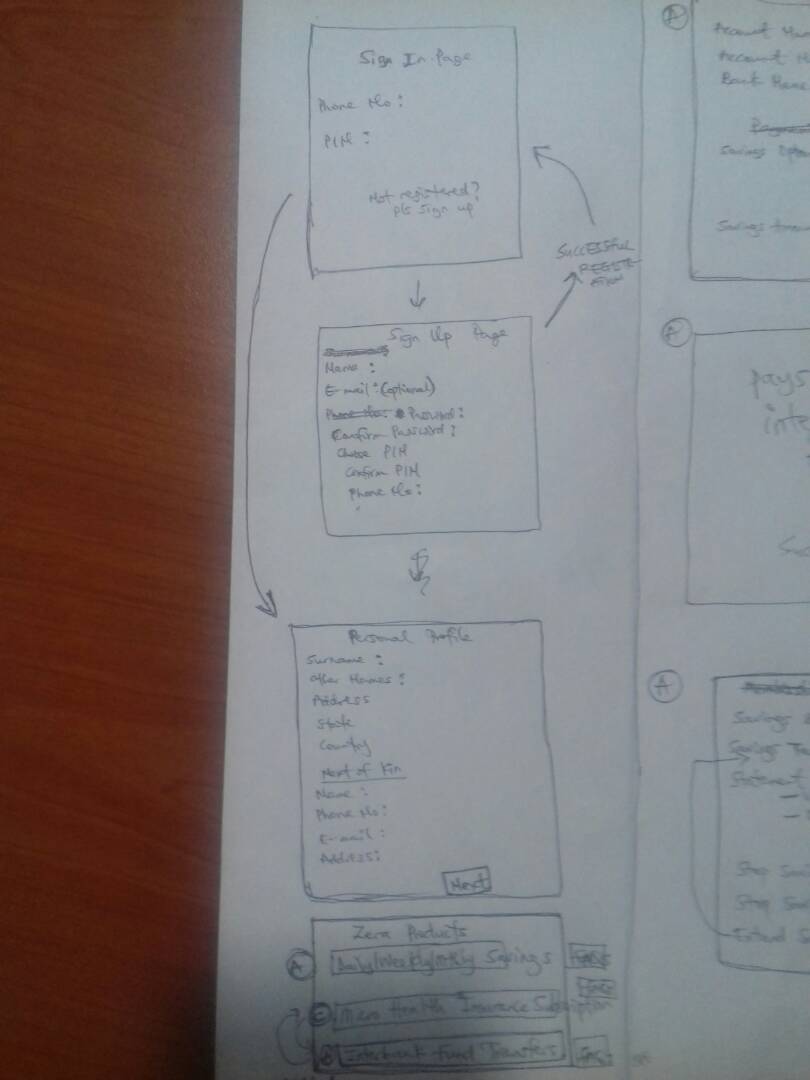 Sign In Page
Phone No :
PIN :
Not registered?
pls sign up
SUCCESSFUL
REGISTR-
ATION
Sign Up Page
Name :
E-mail : (optional)
Phone No: Password :
Confirm Password :
Choose PIN
Confirm PIN
Phone No :
Personal Profile
Surname :
Other Names :
Address
State
Country
Next of Kin
Name :
Phone No :
E-mail :
Address :
Next
Zera Products
A Daily/Weekly/Mtkly Savings FAQs
Micro Health Insurance Subscription
Interbank Fund Transfers
A
Account
Account
Bank Name
Savings
Savings
A
pays
A
Savings
Savings
Statement
Stop
Stop
Extend